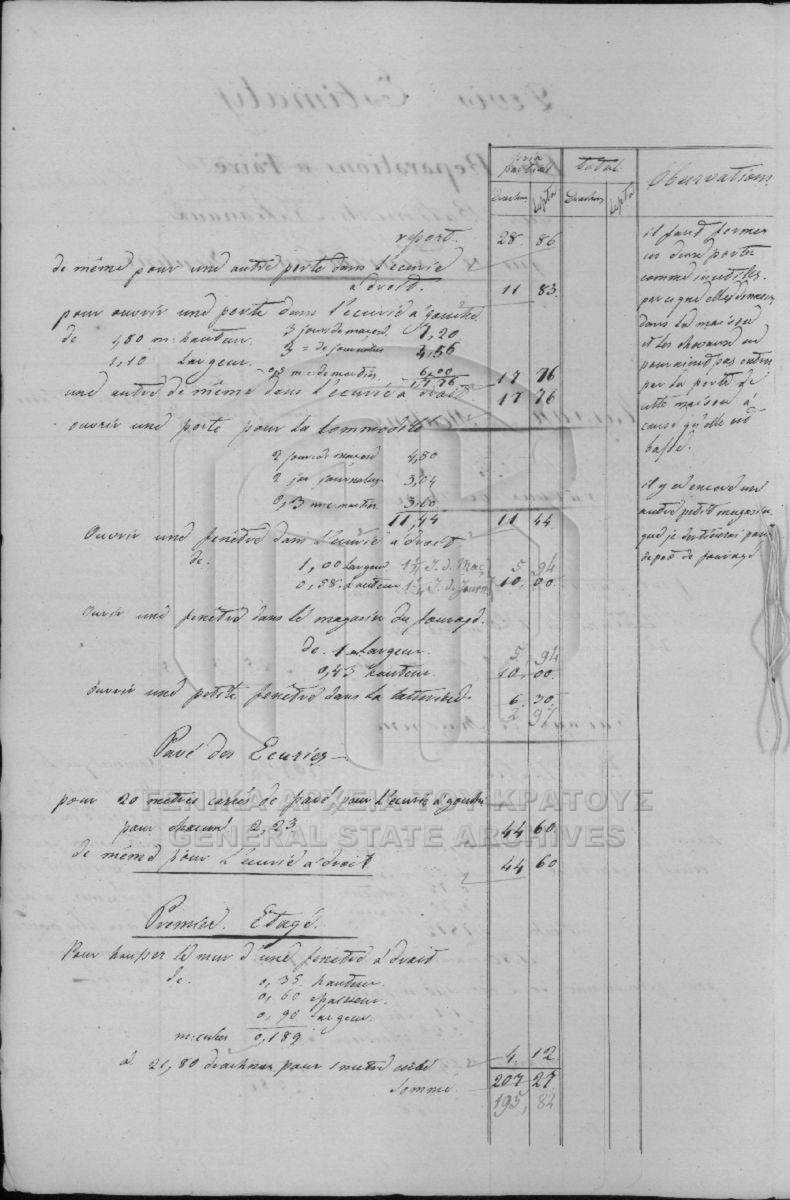 prix partial
total
Observations
Drachm Lepta
Drachm Lepta
report. 28. 86
de même pour une autre porte dans l'écurie
à droit. 11 83
pour ouvrir une porte dans l'écurie à gauche
de 1,80 m: hauteur. 3 jours de maçon. 7,20
1,10 largeur. 3 " de journalier 4,56
0,5 m:c: de mortier 6,00
17,76 17 76
une autre de même dans l'écurie à droit 17 76
ouvrir une porte pour la commodité
2 jour de maçon 4,80
2 jor journalier 3,04
0,3 m:c: mortier 3,60
11,44 11 44
Ouvrir une fenêtre dans l'écurie à droit
de. 1,00 largeur 1½ J. d. Maç. 5. 94
0,58. hauteur 1½ J. d. Journ. 10, 00
Ouvrir une fenêtre dans le magasin du fourage.
de. 1 m largeur. 5. 94
0,43 hauteur. 10, 00.
Ouvrir une petite fenêtre dans la 6. 30.
2 97
Pavé des Ecuries
pour 20 metres carrés de pavé, pour l'écurie à gauche
pour chacune 2,23 44 60.
de même pour l'écurie à droit 44 60
Premier Etage.
Pour hausser le mur d'une fenêtre à droit
de. 0,35. hauteur.
0,60 epaisseur.
0,90 largeur.
m: cubes 0,189.
à 21,80 drachmes, pour 1 metre cube 4. 12
Somme 207 27.
195, 82
il faut fermer
ces deux portes
comme inutiles.
par ce que elles
dans la maison
et les chevaux ne
pourraient pas entrer
par la porte de
cette maison à
cause qu'elle est
basse.
il y a encore un
autre petit magasin
que je
depot de fourage
ΓΕΝΙΚΑ ΑΡΧΕΙΑ ΤΟΥ ΚΡΑΤΟΥΣ
GENERAL STATE ARCHIVES